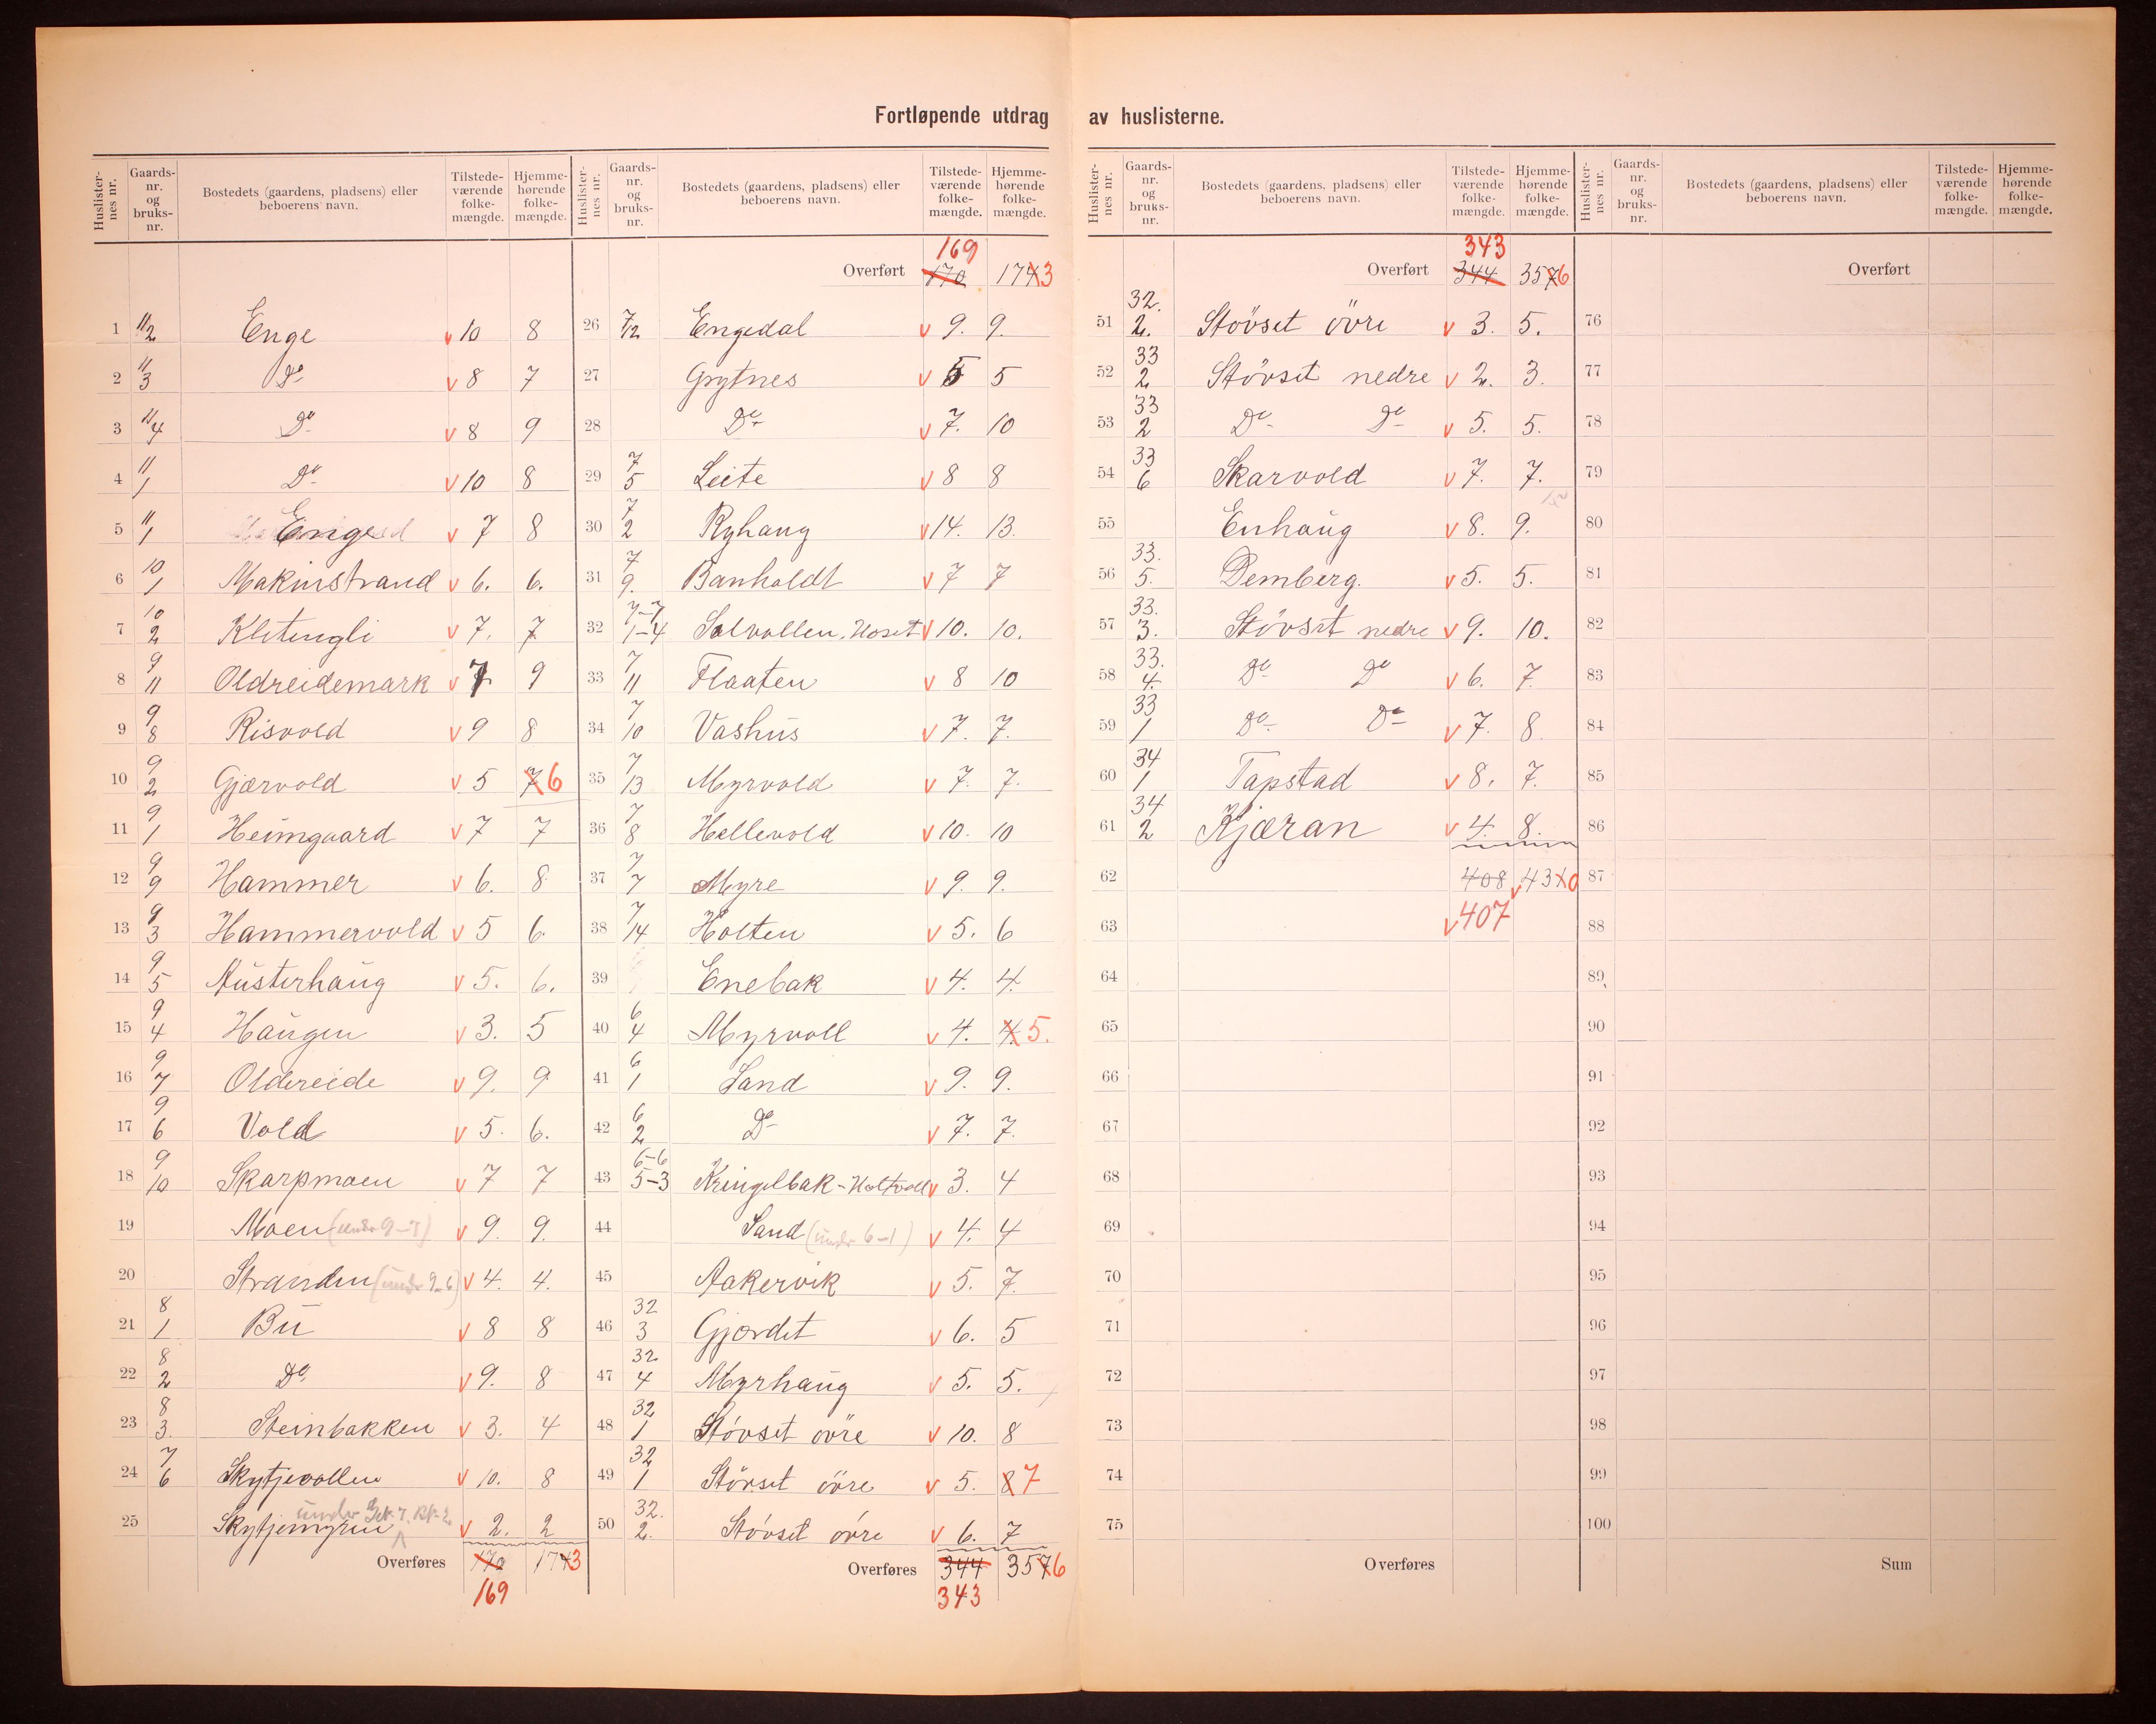 Fortløpende utdrag av huslisterne.
Huslister-nes nr. Gaards-nr. og bruks-nr. Bostedets (gaardens, pladsens) eller beboerens navn. Tilstede-værende folke-mængde. Hjemme-hørende folke-mængde.
1 11/2 Enge v 10 8
2 11/3 Do v 8 7
3 11/4 Do v 8 9
4 11/1 Do v 10 8
5 11/1 Enge v 7 8
6 10/1 Makinstrand v 6. 6.
7 10/2 Kletingli v 7. 7
8 9/11 Oldreidemark v 7 9
9 9/8 Risvold v 9 8
10 9/2 Gjærvold v 5 7 6
11 9/1 Heimgaard v 7 7
12 9/9 Hammer v 6. 8
13 9/3 Hammervold v 5 6.
14 9/5 Austerhaug v 5. 6.
15 9/4 Haugen v 3. 5
16 9/7 Oldereide v 9. 9
17 9/6 Vold v 5. 6.
18 9/10 Skarpmoen v 7 7
19 Moen (under 9-7) v 9. 9.
20 Stranden (under 9-6) v 4. 4.
21 8/1 Bu v 8 8
22 8/2 Do. v 9. 8
23 8/3. Steinbakken v 3. 4
24 7/6 Skytjevollen v 10. 8
25 Skytjemyren under Gr. 7. Br. 2 v 2. 2
Overføres 170 1743
169
Huslister-nes nr. Gaards-nr. og bruks-nr. Bostedets (gaardens, pladsens) eller beboerens navn. Tilstede-værende folke-mængde. Hjemme-hørende folke-mængde.
169
Overført 170 1743
26 7/12 Engedal v 9. 9.
27 Grytnes v 5 5
28 Do v 7. 10
29 7/5 Leite v 8 8
30 7/2 Ryhaug v 14. 13.
31 7/9. Banholdt v 7 7
32 7-7/1-4 Solvollen, Hoset v 10. 10.
33 7/11 Flaaten v 8 10
34 7/10 Vashus v 7. 7.
35 7/13 Myrvold v 7. 7.
36 7/8 Hellevold v 10. 10
37 7/7 Myre v 9. 9.
38 7/14 Holten v 5. 6
39 Enebak v 4. 4.
40 6/4 Myrvoll v 4. 4. 5.
41 6/1 Sand v 9. 9.
42 6/2 Do v 7. 7.
43 6-6/5-3 Kringelbak-Holtvoll v 3. 4
44 Sand (under 6-1) v 4. 4
45 Aakervik v 5. 7.
46 32/3 Gjærdet v 6. 5
47 32/4 Myrhaug v 5. 5.
48 32/1 Støvset øvre v 10. 8
49 32/1 Stövset övre v 5. 8 7
50 32./2. Stövset övre v 6. 7
Overføres 344 3576
343
Huslister-nes nr. Gaards-nr. og bruks-nr. Bostedets (gaardens, pladsens) eller beboerens navn. Tilstede-værende folke-mængde. Hjemme-hørende folke-mængde.
343
Overført 344 3576
51 32./2. Stövset övre v 3. 5.
52 33/2 Stövset nedre v 2. 3.
53 33/2 Do Do v 5. 5.
54 33/6 Skarvold v 7. 7.
55 Enhaug v 8. 9.
56 33./5. Demberg. v 5. 5.
57 33./3. Stövset nedre v 9. 10.
58 33./4. Do Do v 6. 7.
59 33/1 Do Do v 7. 8.
60 34/1 Tapstad v 8. 7.
61 34/2 Kjæran v 4. 8.
62 408 v 4310
63 v 407
64
65
66
67
68
69
70
71
72
73
74
75
Overføres
Huslister-nes nr. Gaards-nr. og bruks-nr. Bostedets (gaardens, pladsens) eller beboerens navn. Tilstede-værende folke-mængde. Hjemme-hørende folke-mængde.
Overført
76
77
78
79
80
81
82
83
84
85
86
87
88
89
90
91
92
93
94
95
96
97
98
99
100
Sum